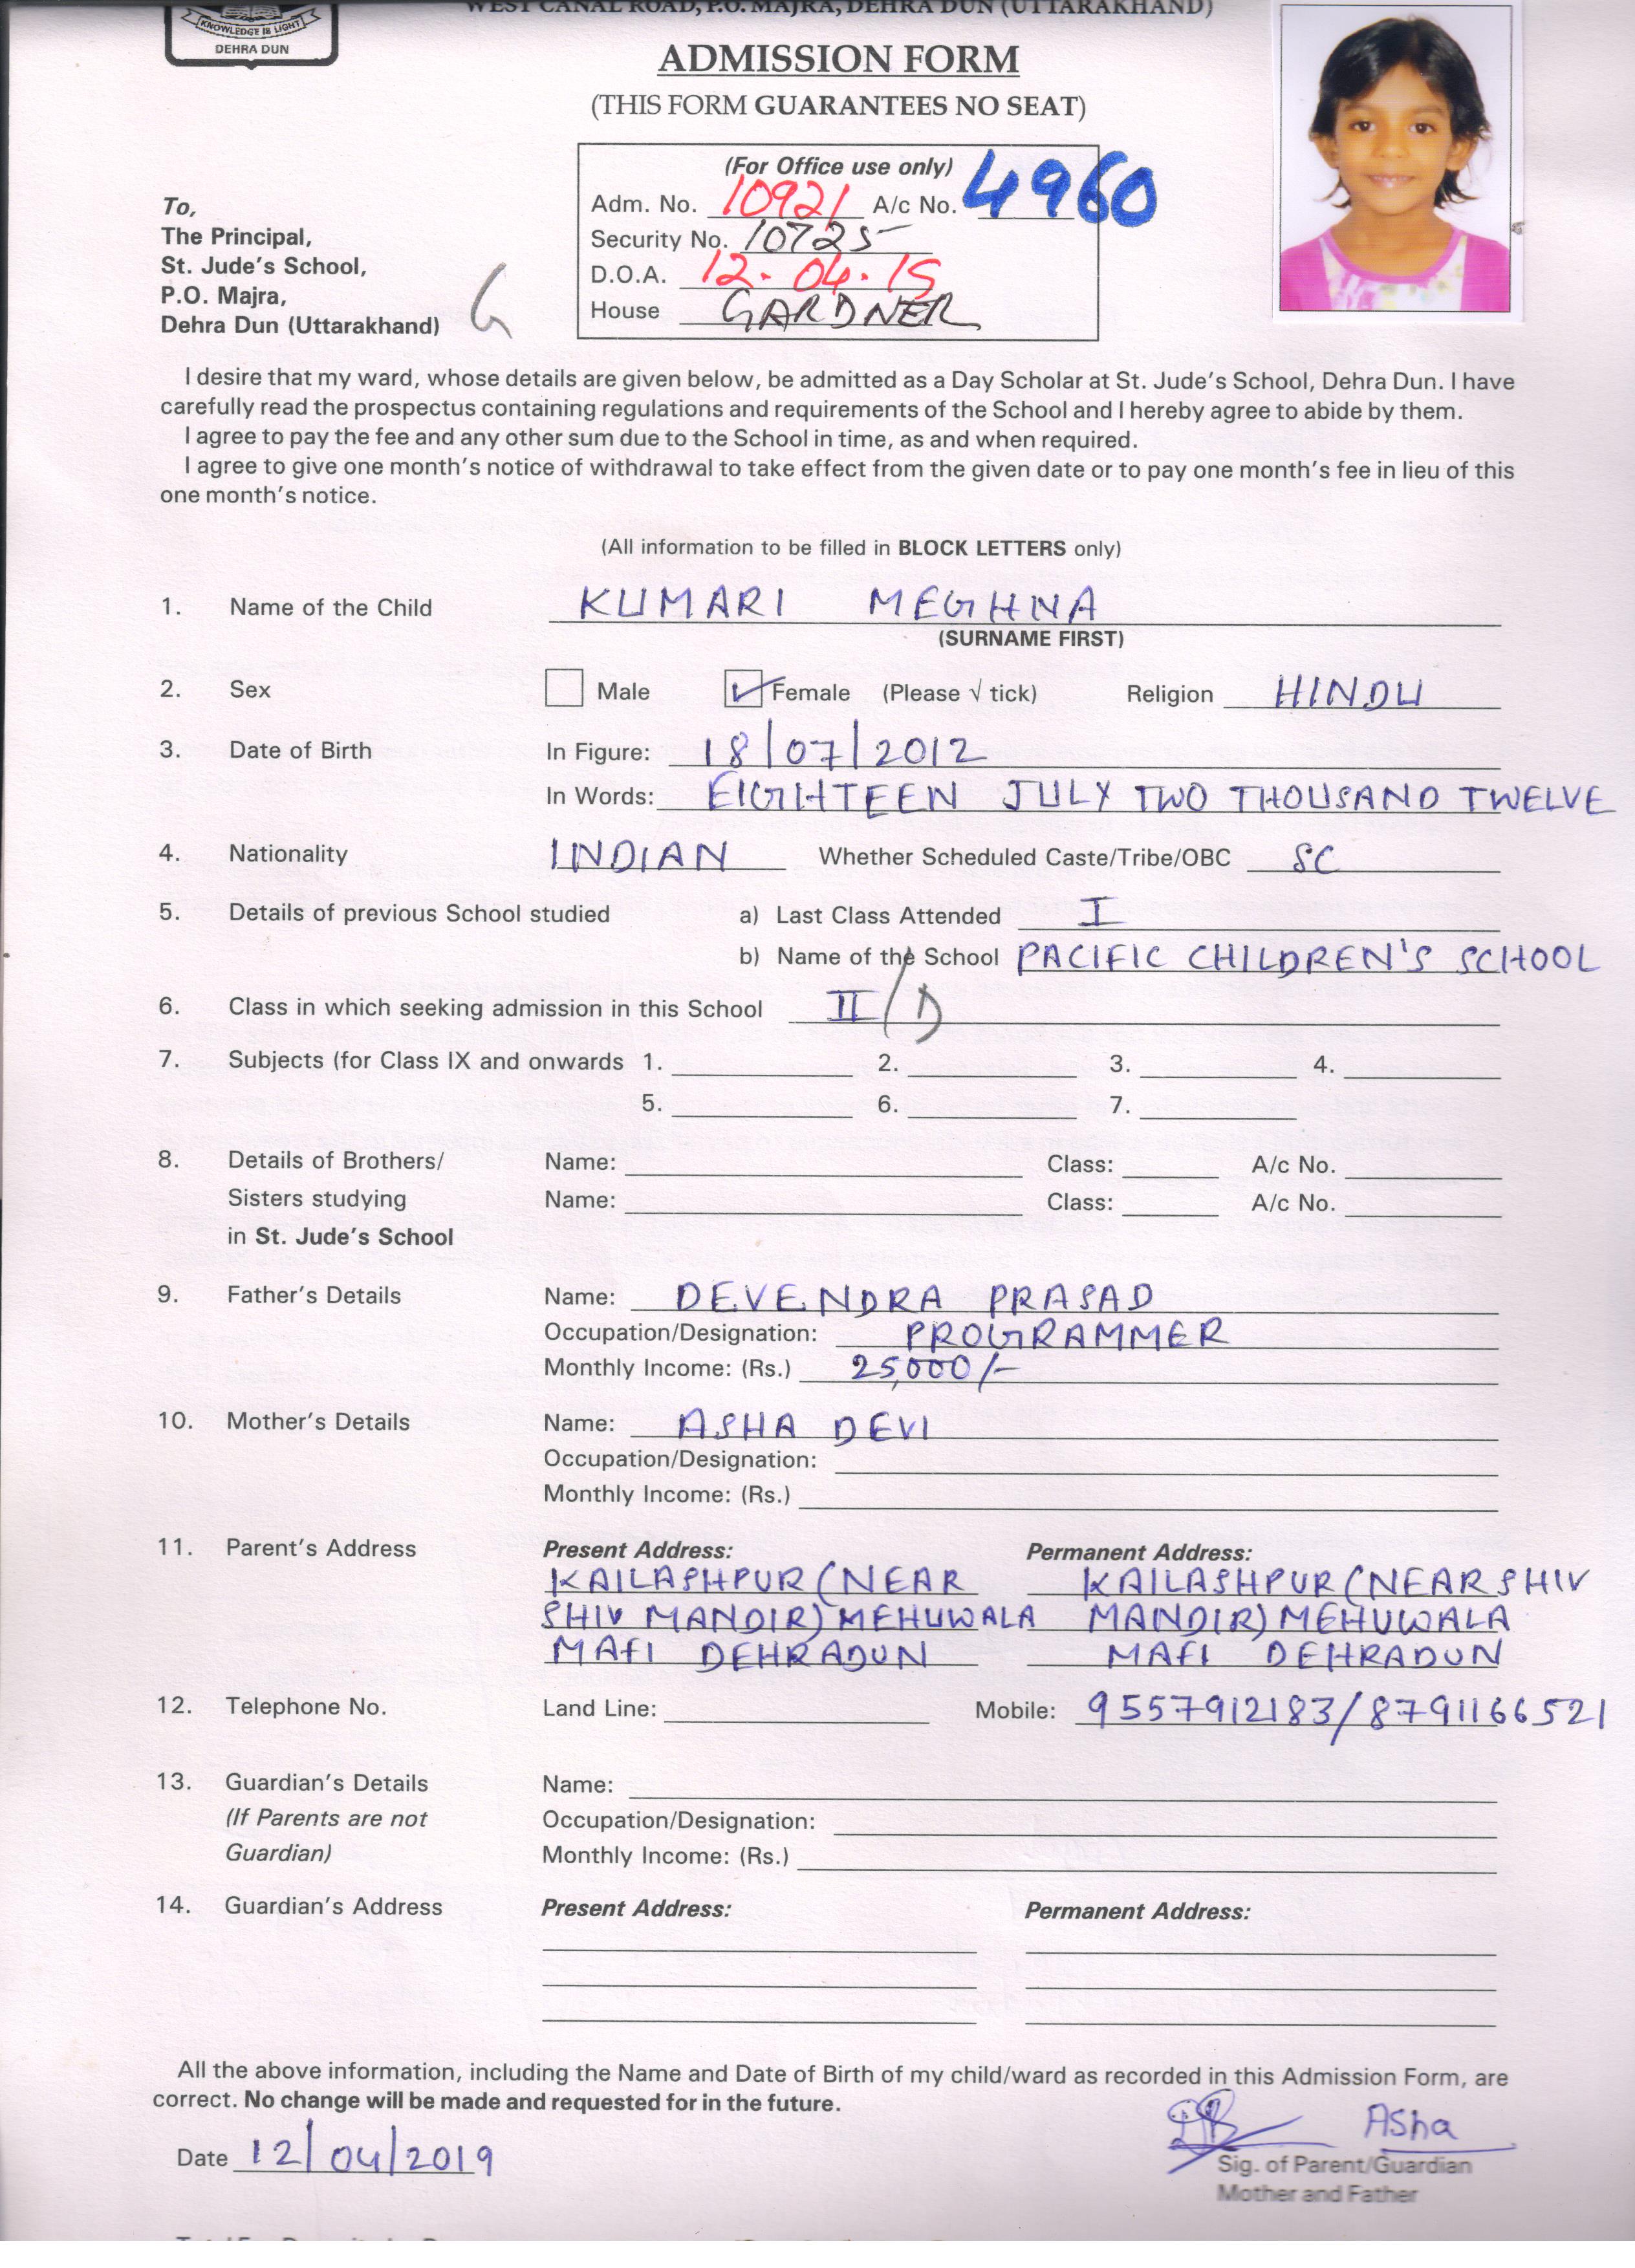 WEST CANAL ROAD, P.O. MAJRA, DEHRA DUN (UTTARAKHAND)
KNOWLEDGE IS LIGHT
DEHRA DUN
ADMISSION FORM
(THIS FORM GUARANTEES NO SEAT)
(For Office use only)
Adm. No. 10921 A/c No. 4960
Security No. 10725
D.O.A. 12.04.19
House GARDNER
To,
The Principal,
St. Jude's School,
P.O. Majra,
Dehra Dun (Uttarakhand)
G
I desire that my ward, whose details are given below, be admitted as a Day Scholar at St. Jude's School, Dehra Dun. I have
carefully read the prospectus containing regulations and requirements of the School and I hereby agree to abide by them.
I agree to pay the fee and any other sum due to the School in time, as and when required.
I agree to give one month's notice of withdrawal to take effect from the given date or to pay one month's fee in lieu of this
one month's notice.
(All information to be filled in BLOCK LETTERS only)
1. Name of the Child KUMARI MEGHNA
(SURNAME FIRST)
2. Sex Male Female (Please √ tick) Religion HINDU
3. Date of Birth In Figure: 18/07/2012
In Words: EIGHTEEN JULY TWO THOUSAND TWELVE
4. Nationality INDIAN Whether Scheduled Caste/Tribe/OBC SC
5. Details of previous School studied a) Last Class Attended I
b) Name of the School PACIFIC CHILDREN'S SCHOOL
6. Class in which seeking admission in this School II/D
7. Subjects (for Class IX and onwards 1. 2. 3. 4.
5. 6. 7.
8. Details of Brothers/ Name: Class: A/c No.
Sisters studying Name: Class: A/c No.
in St. Jude's School
9. Father's Details Name: DEVENDRA PRASAD
Occupation/Designation: PROGRAMMER
Monthly Income: (Rs.) 25,000/-
10. Mother's Details Name: ASHA DEVI
Occupation/Designation:
Monthly Income: (Rs.)
11. Parent's Address Present Address: Permanent Address:
KAILASHPUR (NEAR KAILASHPUR (NEAR SHIV
SHIV MANDIR) MEHUWALA MANDIR) MEHUWALA
MAFI DEHRADUN MAFI DEHRADUN
12. Telephone No. Land Line: Mobile: 9557912183/8791166521
13. Guardian's Details Name:
(If Parents are not Occupation/Designation:
Guardian) Monthly Income: (Rs.)
14. Guardian's Address Present Address: Permanent Address:
All the above information, including the Name and Date of Birth of my child/ward as recorded in this Admission Form, are
correct. No change will be made and requested for in the future.
Asha
Date 12/04/2019
Sig. of Parent/Guardian
Mother and Father